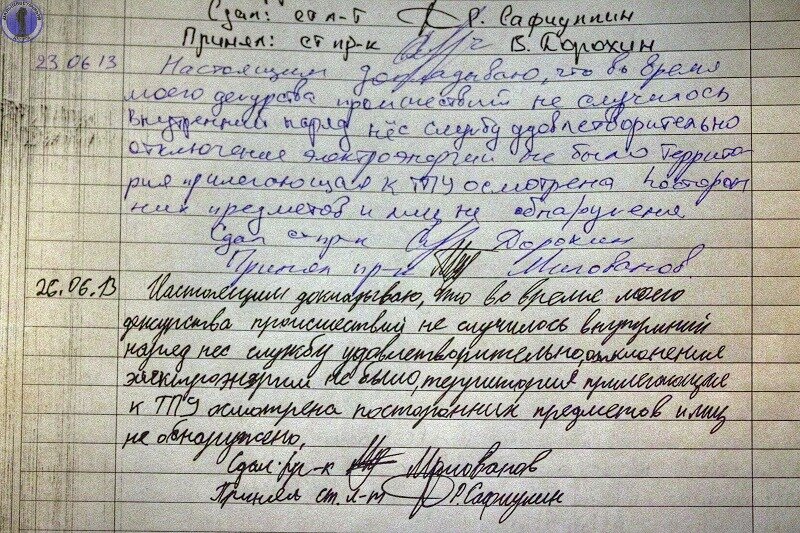 Сдал: ст л-т Р. Сафиуллин
Принял: ст пр-к В. Дорохин
23.06.13 Настоящим докладываю, что во время
моего дежурства происшествий не случилось
Внутренний наряд нёс службу удовлетворительно
отключение электроэнергии не было Террито-
рия прилегающая к ТТУ осмотрена посторон
них предметов и лиц не обнаружена
Сдал ст пр-к Дорохин
Принял пр-к Милованов
26.06.13 Настоящим докладываю, что во время моего
дежурства происшествий не случилось внутриний
наряд нес службу удовлетворительно, отклонения
электроэнергии не было, территория прилегающая
к ТТУ осмотрена посторонних предметов и лиц
не обнаружено,
Сдал: пр-к Милованов
Принял ст. л-т Р. Сафиулин